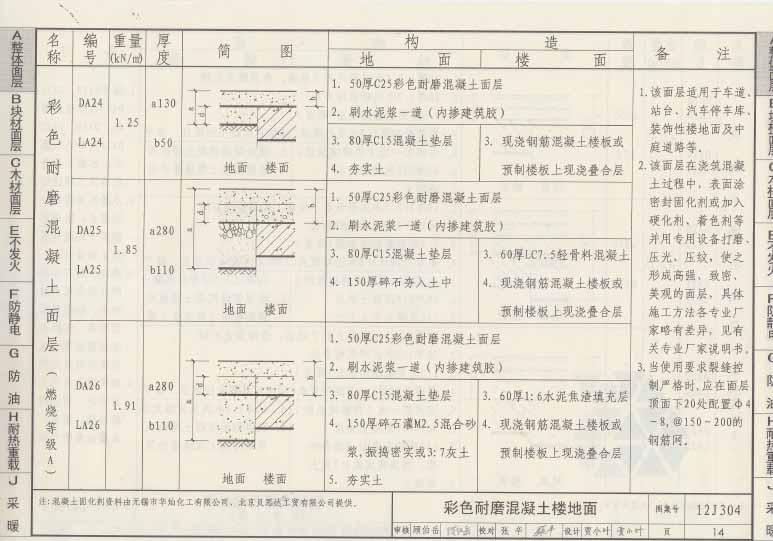 A 整体面层
B 块材面层
C 木材面层
E 不发火
F 防静电
G 防油
H 耐热重载
J 采暖
名称
编号
重量(kN/m²)
厚度
简图
构造
地面
楼面
备注
彩色耐磨混凝土面层(燃烧等级A)
DA24
LA24
1.25
a130
b50
地面 楼面
1. 50厚C25彩色耐磨混凝土面层
2. 刷水泥浆一道(内掺建筑胶)
3. 80厚C15混凝土垫层
4. 夯实土
3. 现浇钢筋混凝土楼板或
预制楼板上现浇叠合层
DA25
LA25
1.85
a280
b110
地面 楼面
1. 50厚C25彩色耐磨混凝土面层
2. 刷水泥浆一道(内掺建筑胶)
3. 80厚C15混凝土垫层
4. 150厚碎石夯入土中
3. 60厚LC7.5轻骨料混凝土
4. 现浇钢筋混凝土楼板或
预制楼板上现浇叠合层
DA26
LA26
1.91
a280
b110
地面 楼面
1. 50厚C25彩色耐磨混凝土面层
2. 刷水泥浆一道(内掺建筑胶)
3. 80厚C15混凝土垫层
4. 150厚碎石灌M2.5混合砂
浆,振捣密实或3:7灰土
5. 夯实土
3. 60厚1:6水泥焦渣填充层
4. 现浇钢筋混凝土楼板或
预制楼板上现浇叠合层
1. 该面层适用于车道、
站台、汽车停车库、
装饰性楼地面及中
庭道路等.
2. 该面层在浇筑混凝
土过程中,表面涂
密封固化剂或加入
硬化剂、着色剂等
并用专用设备打磨、
压光、压纹,使之
形成高强、致密、
美观的面层,具体
施工方法各专业厂
家略有差异,见有
关专业厂家说明书.
3. 当使用要求裂缝控
制严格时,应在面层
顶面下20处配置φ4
~8,@150~200的
钢筋网.
注:混凝土固化剂资料由无锡市华灿化工有限公司、北京贝思达工贸有限公司提供.
彩色耐磨混凝土楼地面
图集号
12J304
审核 顾伯岳 校对 张华 设计 贾小叶
页
14